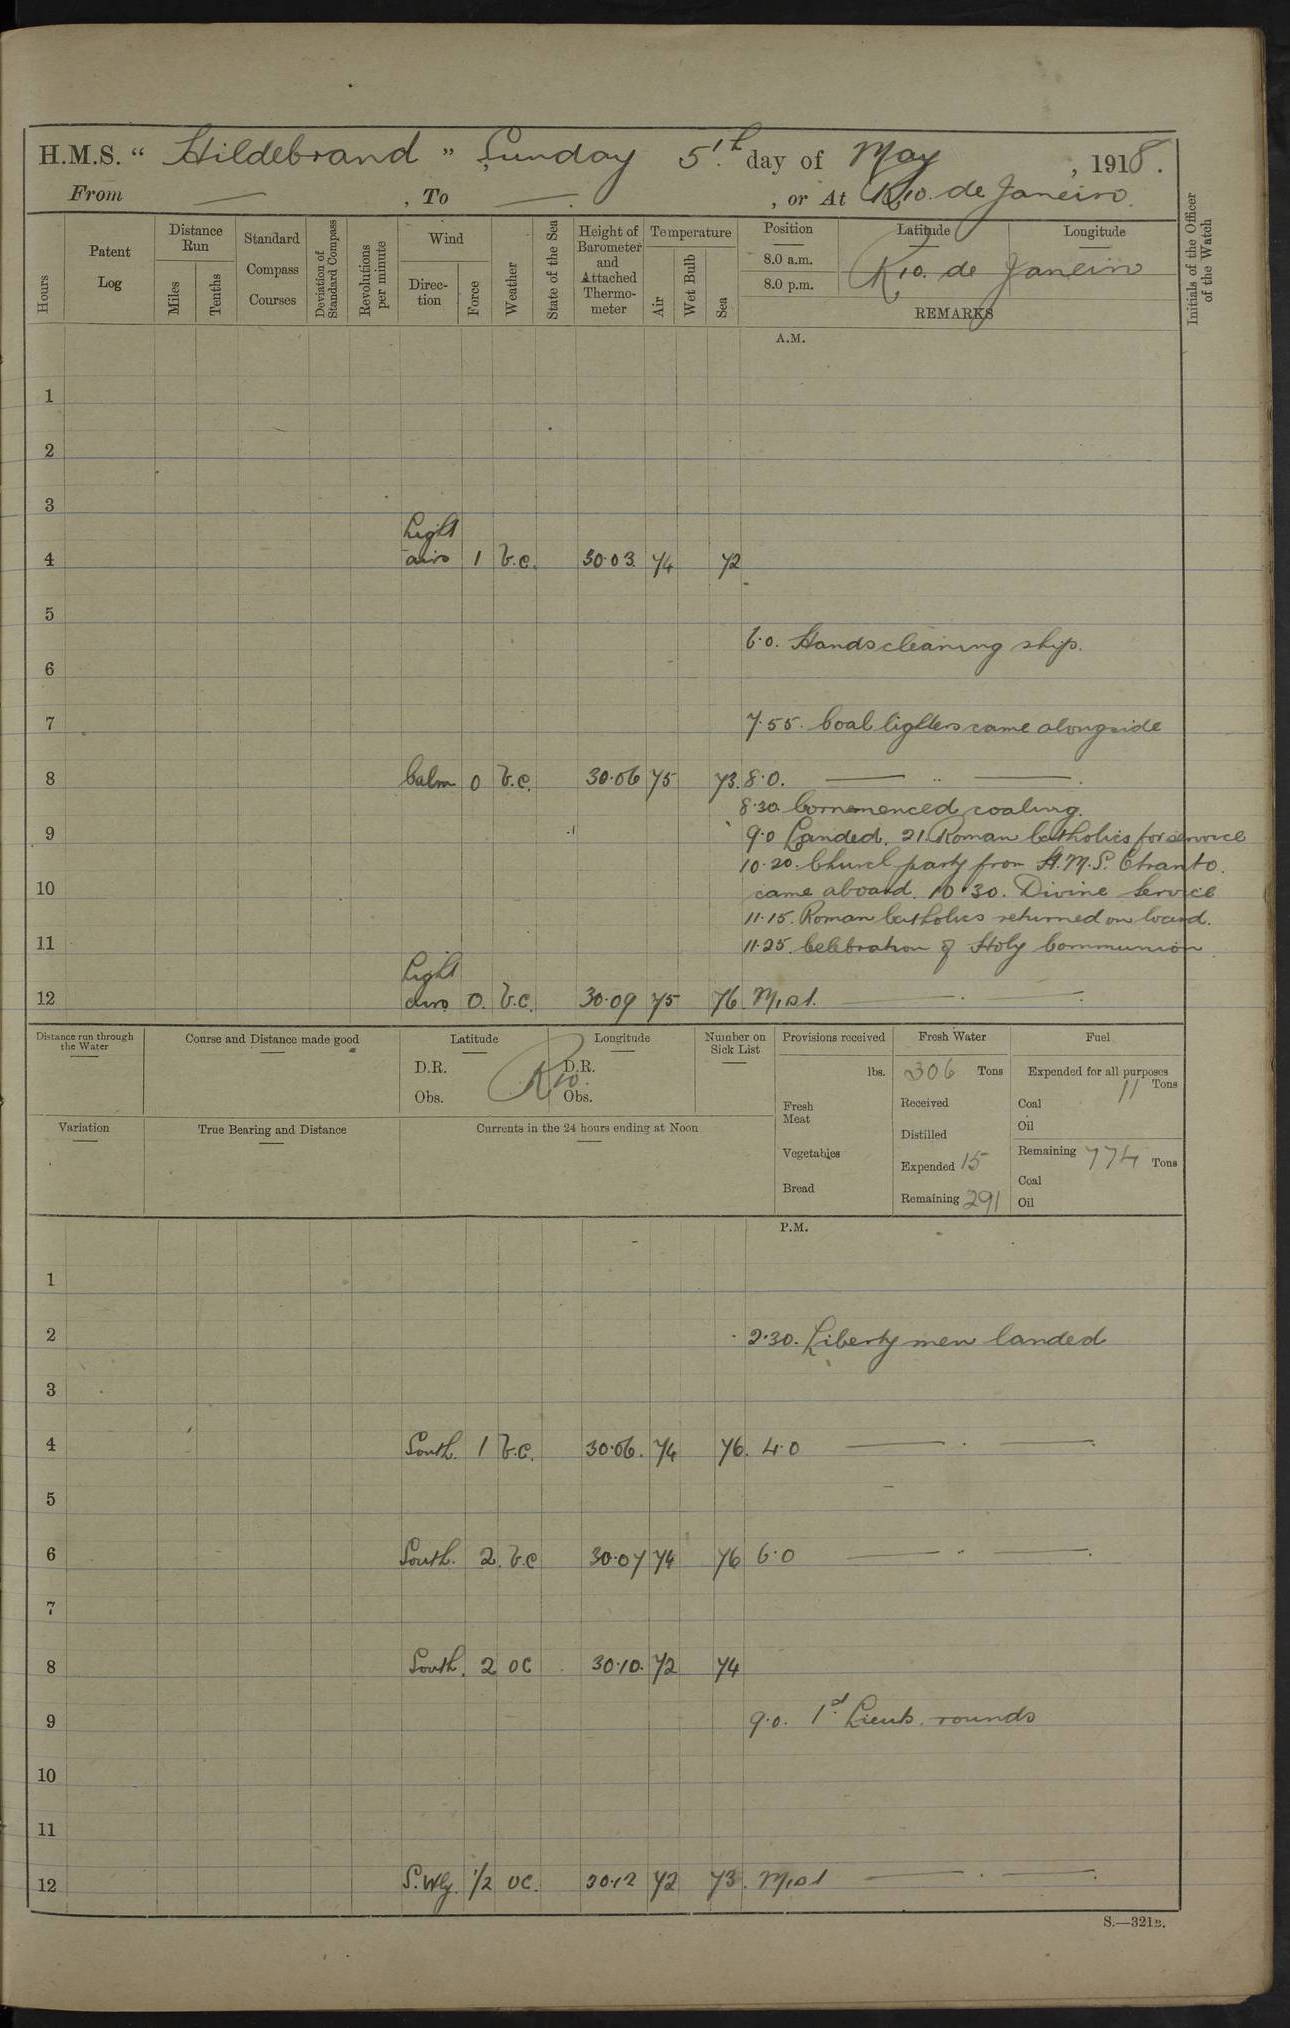 H.M.S. “ Hildebrand ” Sunday 5th day of May , 1918.
From — , To — . , or At Rio de Janeiro.
Hours
Patent Log
Distance Run
Miles
Tenths
Standard Compass Courses
Deviation of Standard Compass
Revolutions per minute
Wind
Direction
Force
Weather
State of the Sea
Height of Barometer and Attached Thermometer
Temperature
Air
Wet Bulb
Sea
Position
8.0 a.m.
8.0 p.m.
Latitude
Longitude
Rio de Janeiro
REMARKS
Initials of the Officer of the Watch
A.M.
1
2
3
Light
4 airs 1 b.c. 30.03. 74 72
5
6.0. Hands cleaning ship.
6
7
7.55. Coal lighters came alongside
8 Calm 0 b.c. 30.06 75 73. 8.0. — " — .
8.30. Commenced coaling.
9 9.0 Landed. 21. Roman Catholics for service
10.20. Church party from H.M.S. Otranto.
10 came aboard. 10.30. Divine Service
11.15. Roman Catholics returned on board.
11 11.25. Celebration of Holy Communion
Light
12 airs 0. b.c. 30.09 75 76. M,,d t. — . — .
Distance run through the Water
Course and Distance made good
Latitude
D.R.
Obs.
Longitude
D.R.
Obs.
Rio.
Number on Sick List
Provisions received
lbs.
Fresh Meat
Vegetables
Bread
Fresh Water
306 Tons
Received
Distilled
Expended 15
Remaining 291
Fuel
Expended for all purposes
11 Tons
Coal
Oil
Remaining 774 Tons
Coal
Oil
Variation
True Bearing and Distance
Currents in the 24 hours ending at Noon
P.M.
1
2 2.30. Liberty men landed
3
4 South. 1 b.c. 30.06. 74 76. 4.0 — . — .
5
6 South. 2. b.c 30.07 74 76 6.0 — . — .
7
8 South. 2 OC 30.10. 72 74
9 9.0. 1st Lieuts. rounds
10
11
12 S.Wly. 1/2 OC. 30.12 72 73.  — . — .
S.—321B.